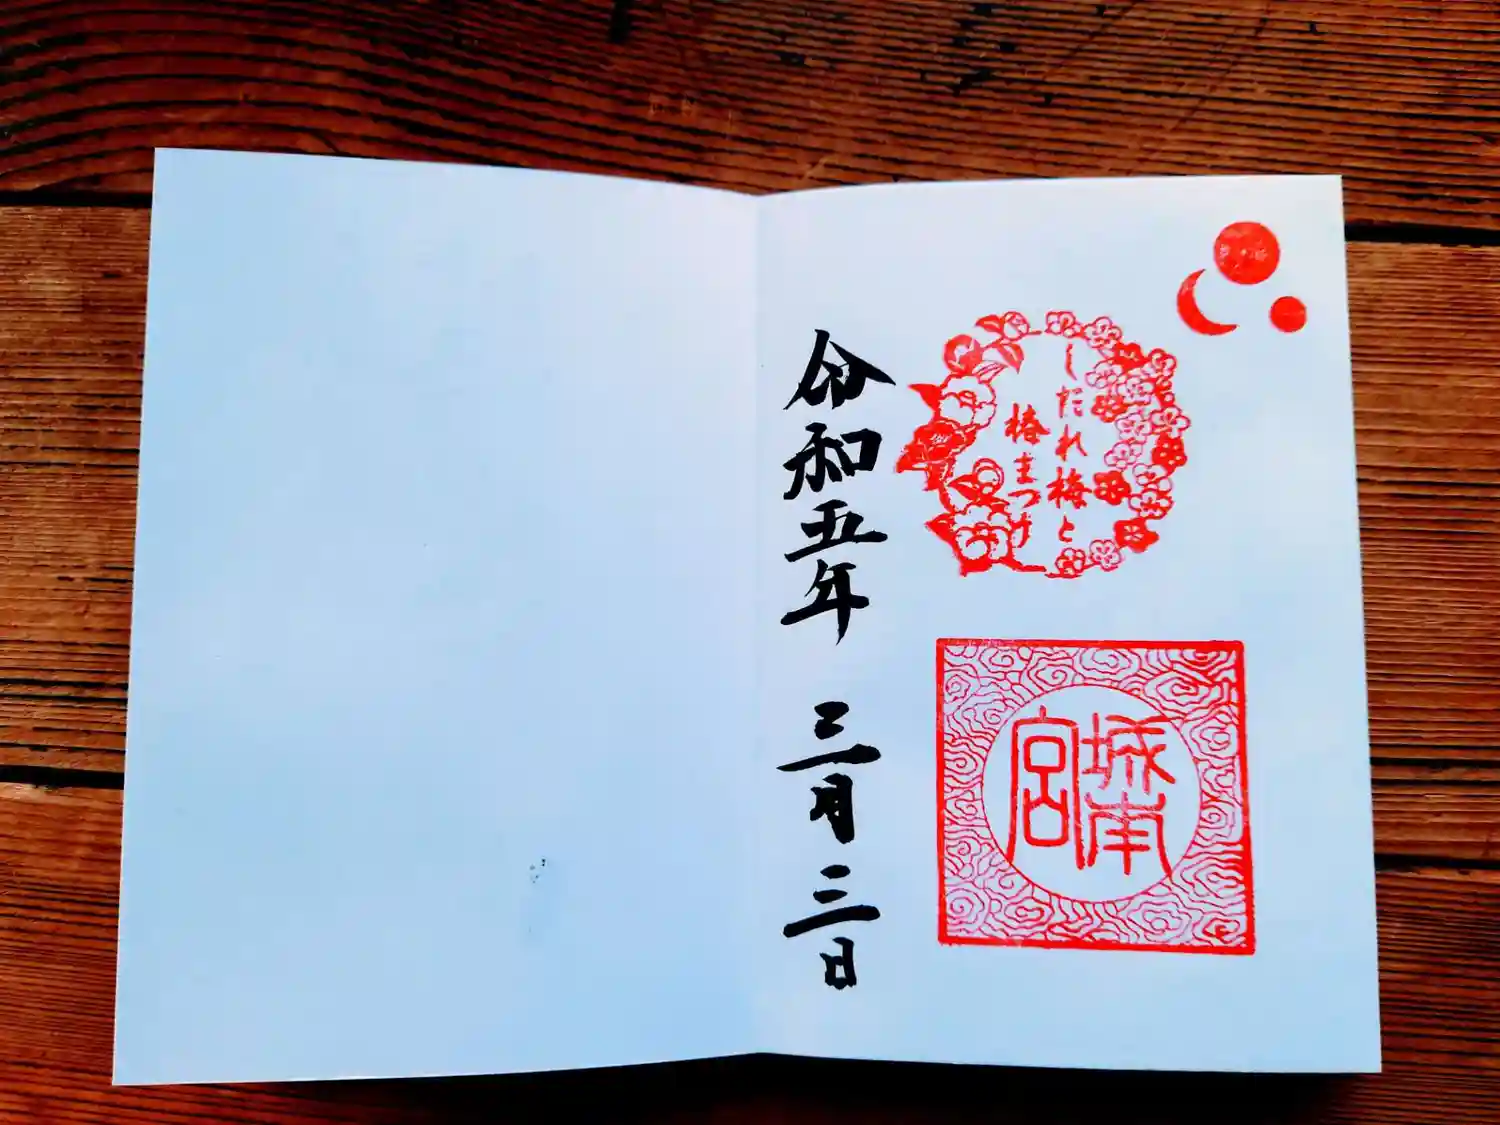 しだれ梅と
椿まつり
城南
宮
令和五年 三月三日